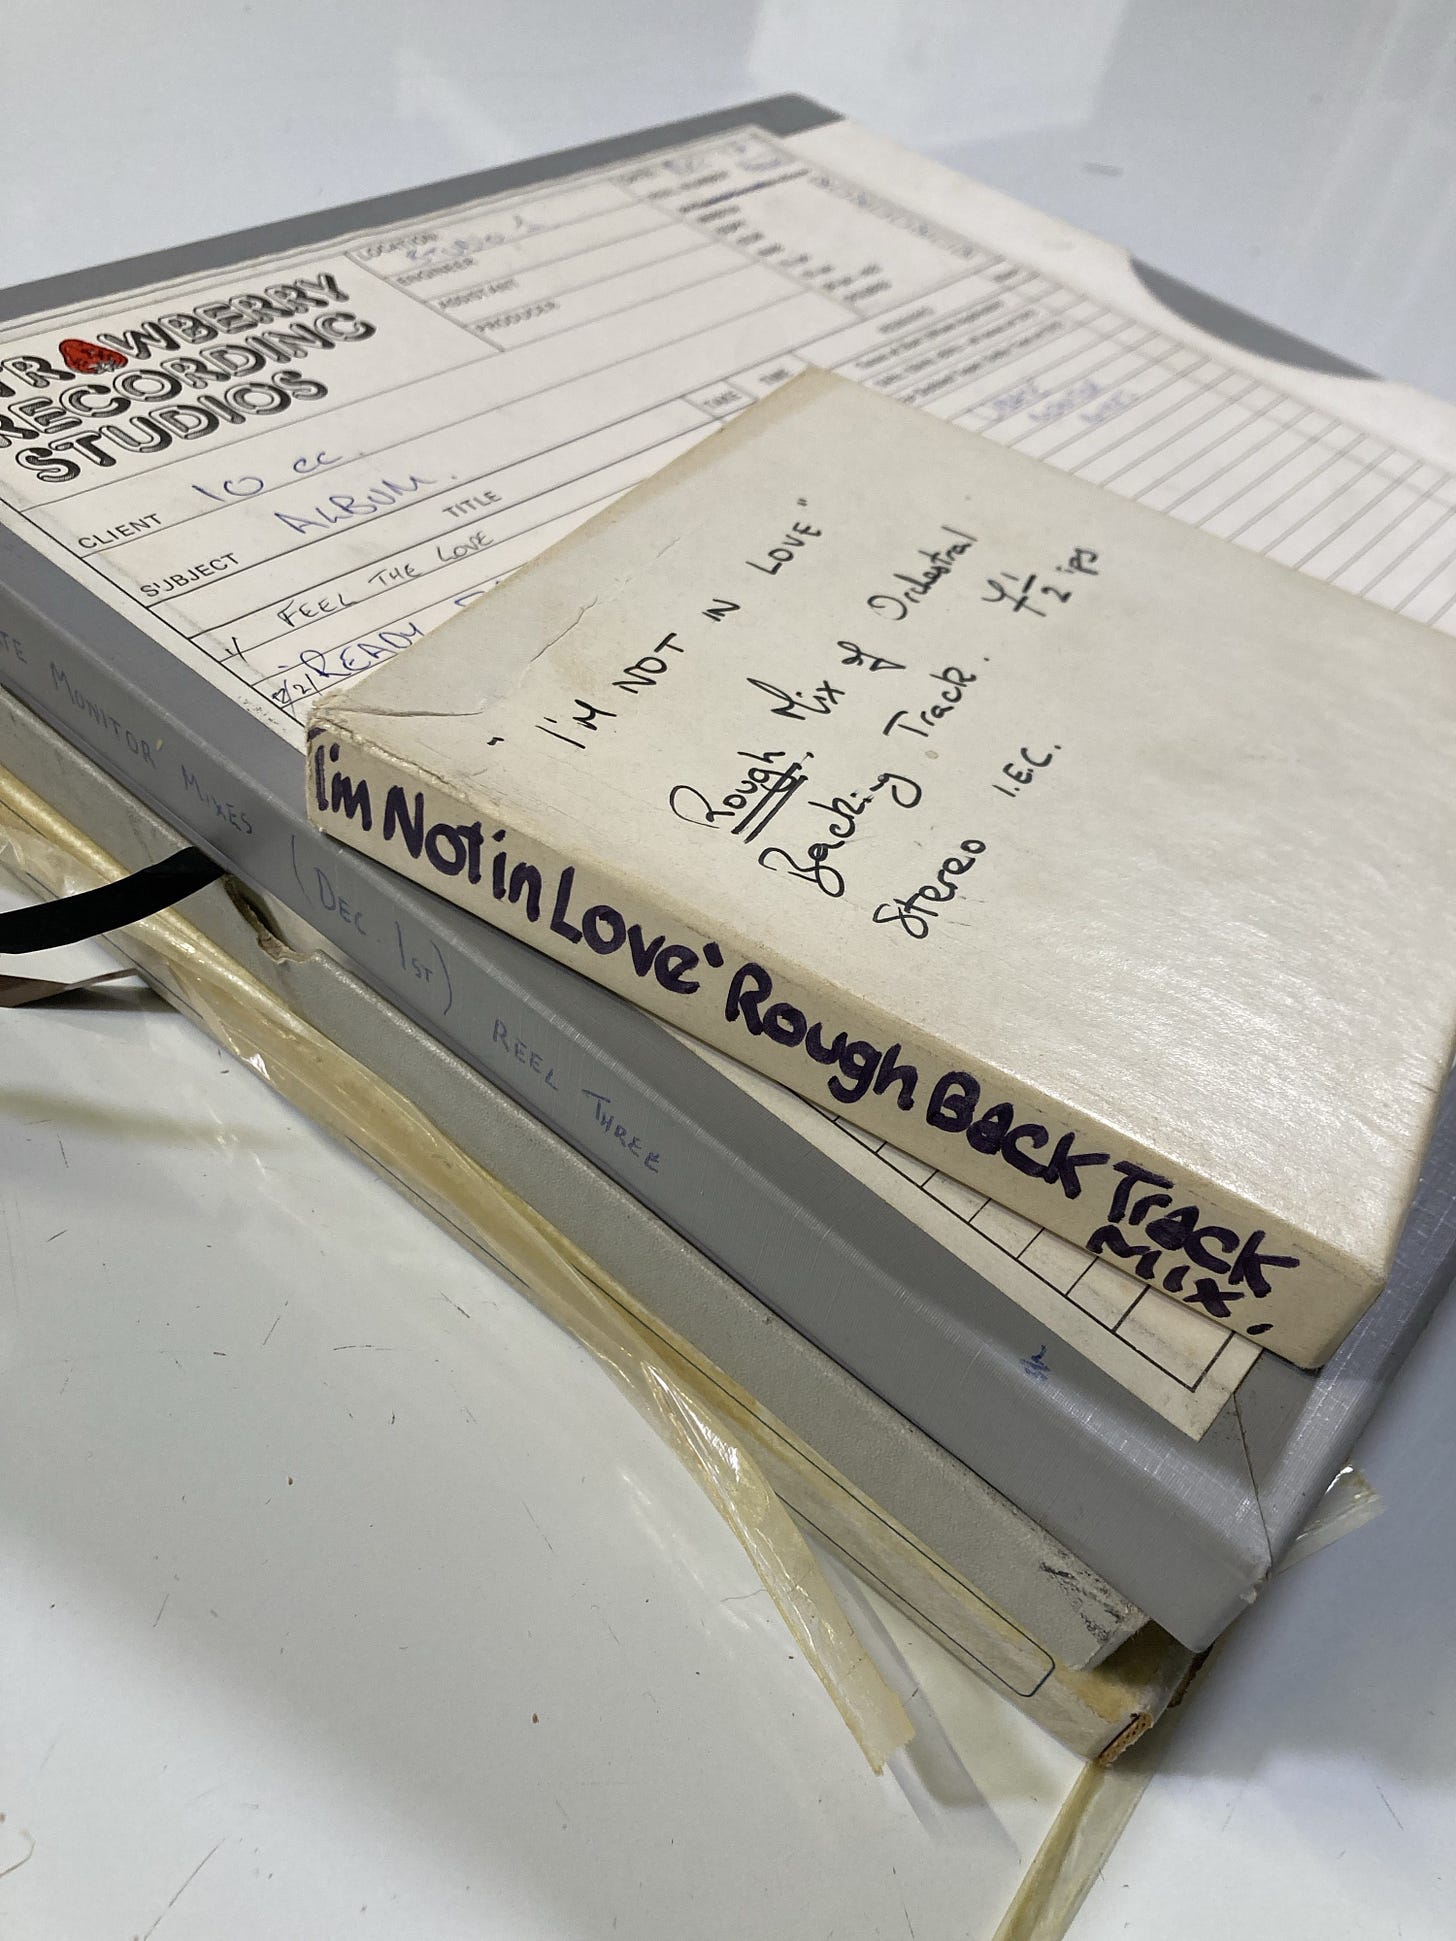 STRAWBERRY
RECORDING
STUDIOS
LOCATION STUDIO 1
ENGINEER
ASSISTANT
PRODUCER
CLIENT 10 cc.
SUBJECT ALBUM.
TITLE
TAKE
TIME
FEEL THE LOVE
READY
"I'M NOT IN LOVE"
Rough Mix of Orchestral
Backing Track.
Stereo I.E.C. 7½ ips
I'm Not in Love' Rough Back Track
Mix.
MONITOR MIXES (DEC. 1ST) REEL THREE